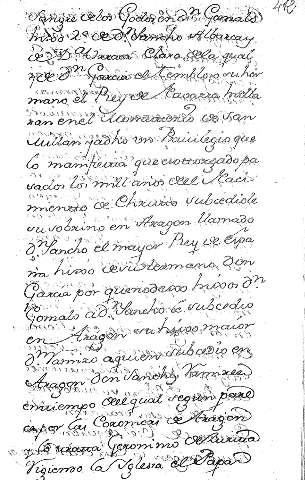 462
sangre de los Godos, on Dn Gonzalo
hixo 2º de Dn Sancho Abarca y
de Dª Urraca Clara de la qual
y de Dn Garcia el temblon su her
mano el Rey de Navarra halla
ran en el Monasterio de San
Millan yo dho un Privilegio que
lo manifiesta que es otorgado pa
sados los mill años de el Naci
miento de Christo subcediole
su sobrino en Aragon llamado
Dn Sancho el mayor Rey de Espa
ña hixo de su hermano Don
Garcia por que no dexo hixos Dn
Gonzalo a Dn Sancho le subcedio
en Aragon su hijo maior
Dn Ramiro a quien subcedio en
Aragon Don Sancho Ramirez
en tiempo del qual segun pare
ce por las Coronicas de Aragon
y Geronimo de Zurita
rigiendo la Iglesia el Papa